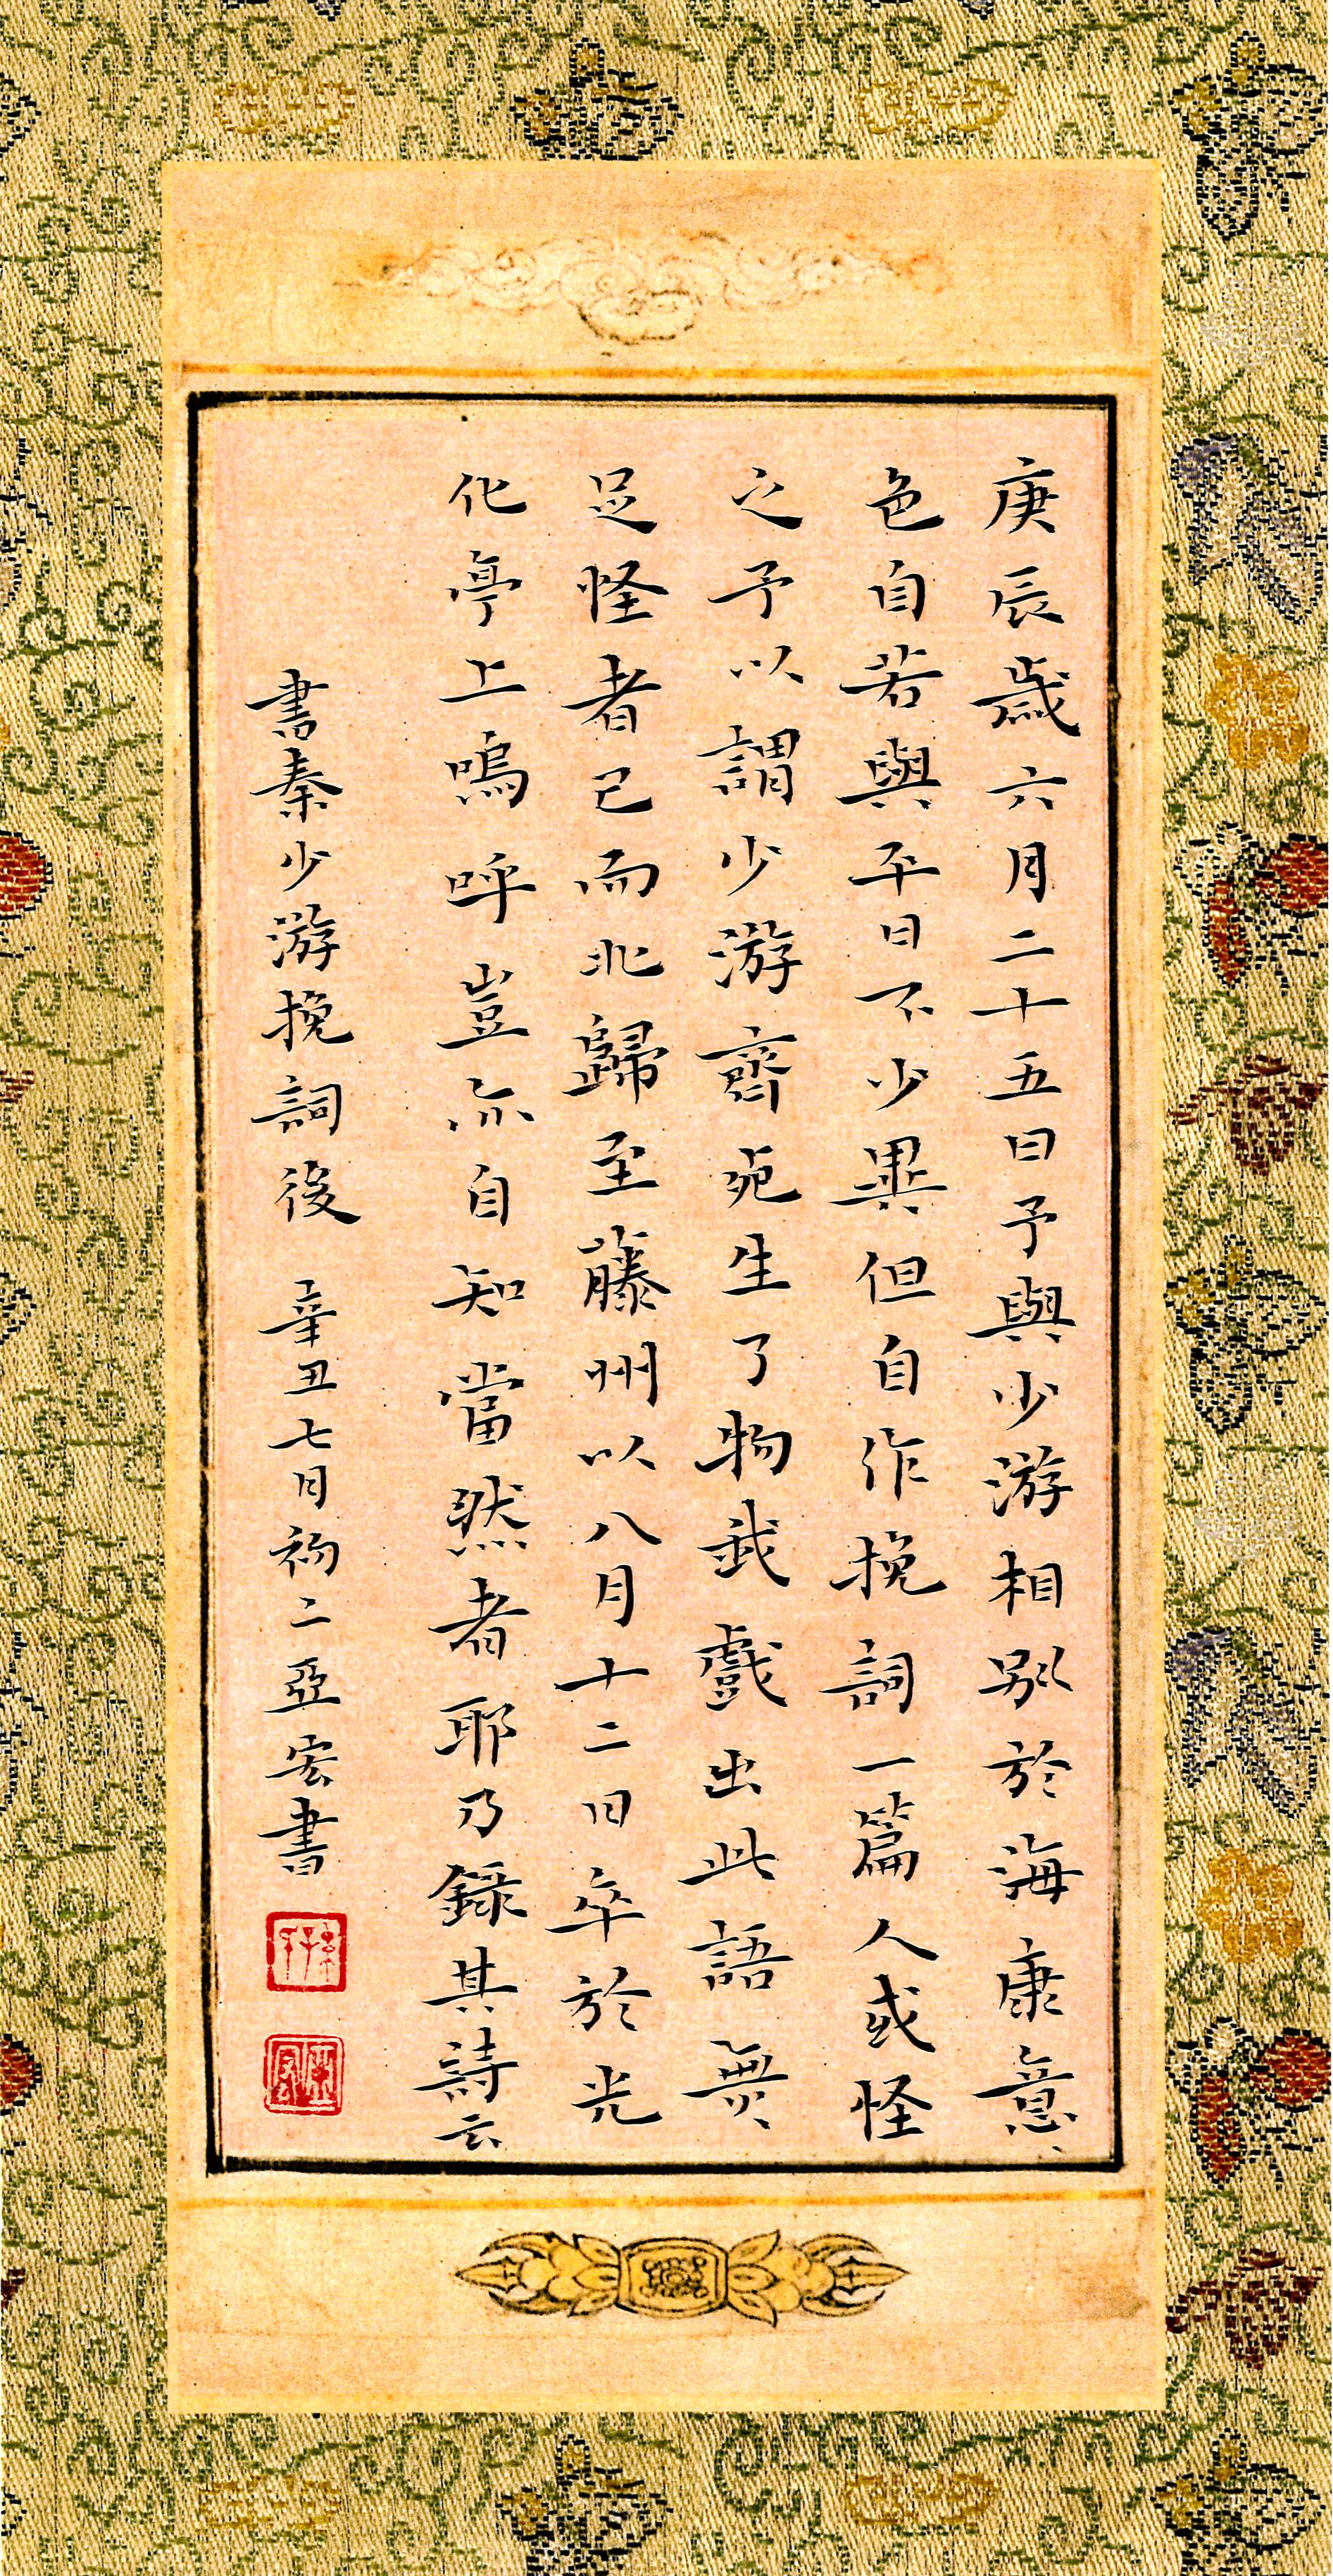 庚辰歲六月二十五日予與少游相別於海康意
色自若與平日不少異但自作挽詞一篇人或怪
之予以謂少游齊死生了物我戲出此語無
足怪者已而北歸至藤州以八月十二日卒於光
化亭上嗚呼豈亦自知當然者耶乃錄其詩云
書秦少游挽詞後 辛丑七月初二亞宏書